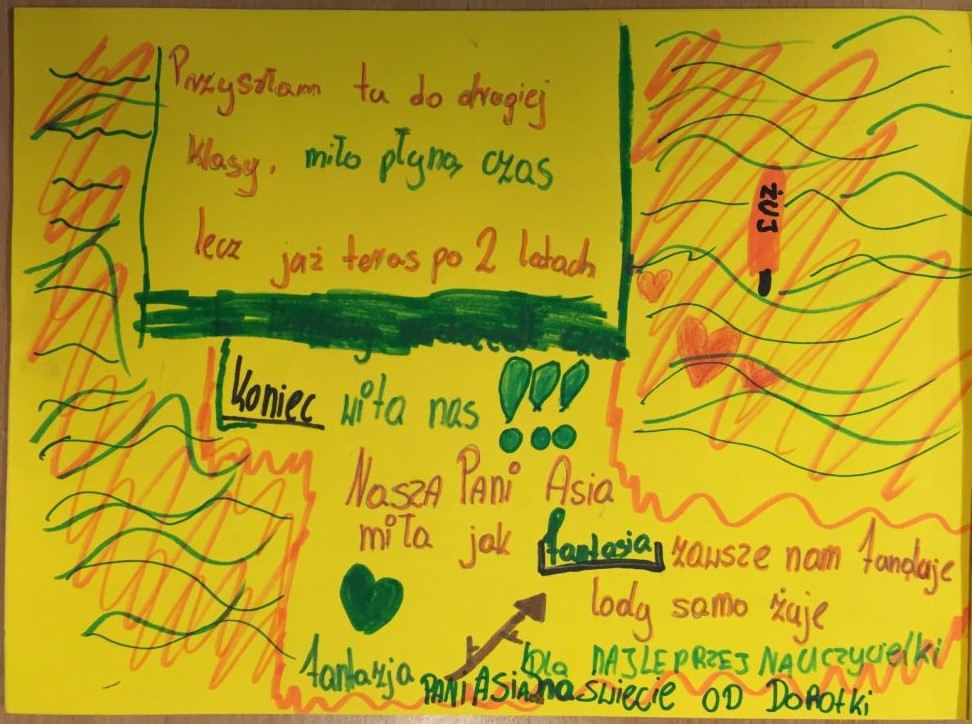 Przyszłam tu do drogiej
klasy. miło płyną czas
lecz jaż teras po 2 latach
Koniec wita nas !!!
Nasza Pani Asia
miła jak fantasia zawsze nam fandaje
lody samo żuje
fantazja
DLA NAJLEPRZEJ NAUCZYCIELKI
PANI Asia na świecie OD DOROTKI
ŻUJ